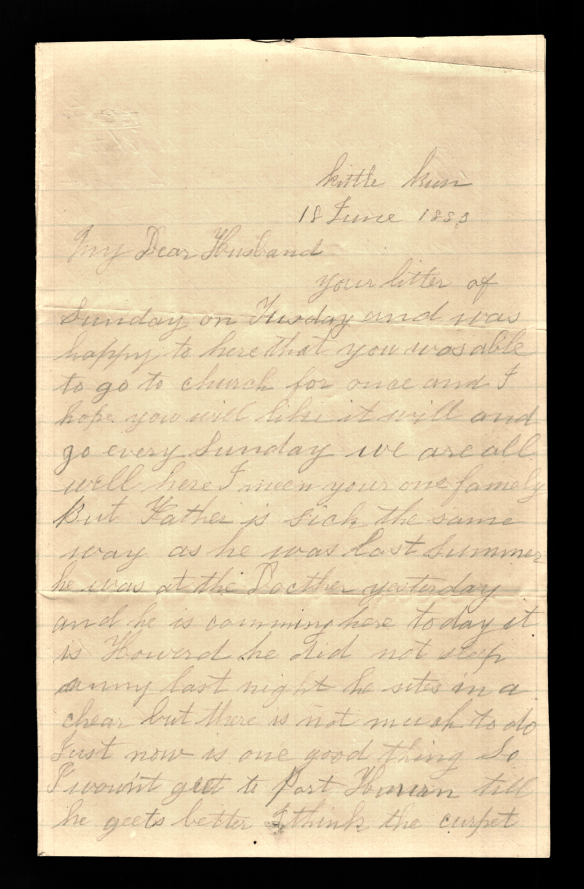 kittle Run
18 June 1883
My Dear Husband
your litter of
Sunday on Tusday and was
happy to here that you was able
to go to church for once and I
hope you will like it will and
go every Sunday we are all
well here I meen your one famely
But Father is sick the same
way as he was last Summer
he was at the Docther yesterday
and he is comming here today it
is Howerd he did not sleep
anny last night he sites in a
chear but there is not much to do
Just now is one good thing So
I wount geet to Port Huran till
he geets better I think the curpet